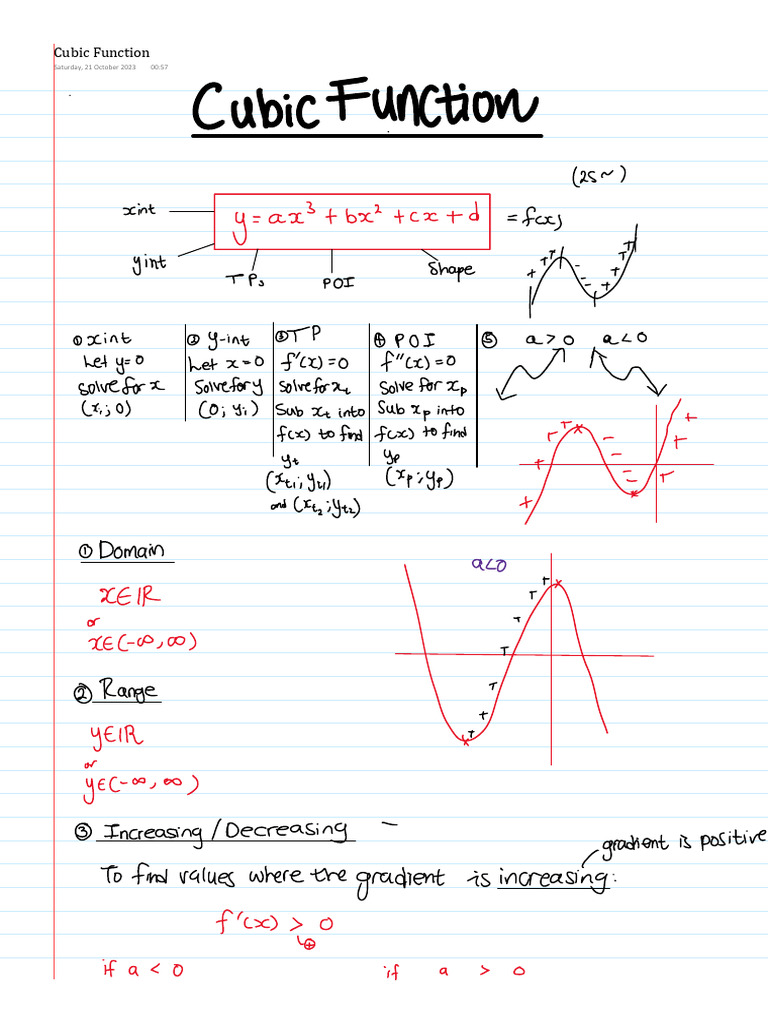 Cubic Function
Saturday, 21 October 2023 00:57
Cubic Function
(25~)
x int
y = ax³ + bx² + cx + d = f(x)
y int
TPs
POI
Shape
① x int
Let y=0
solve for x
(xᵢ; 0)
② y-int
Let x=0
Solve for y
(0; yᵢ)
③ TP
f'(x)=0
solve for xₜ
Sub xₜ into
f(x) to find
yₜ
(xₜ₁; yₜ₁)
and (xₜ₂; yₜ₂)
④ POI
f''(x)=0
Solve for xₚ
Sub xₚ into
f(x) to find
yₚ
(xₚ; yₚ)
⑤ a>0 a<0
① Domain
x∈ℝ
or
x∈(-∞,∞)
a<0
② Range
y∈ℝ
or
y∈(-∞,∞)
③ Increasing / Decreasing –
gradient is positive
To find values where the gradient is increasing:
f'(x) > 0
↳⊕
if a < 0 if a > 0